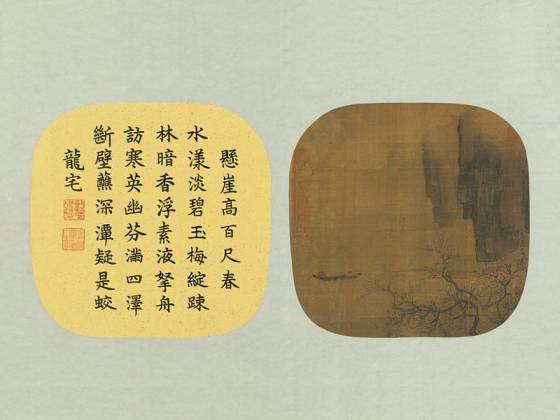 懸崖高百尺春
水漾淡碧玉梅綻踈
林暗香浮素液拏舟
訪寒英幽芬滿四澤
斷壁蘸深潭疑是蛟
龍宅